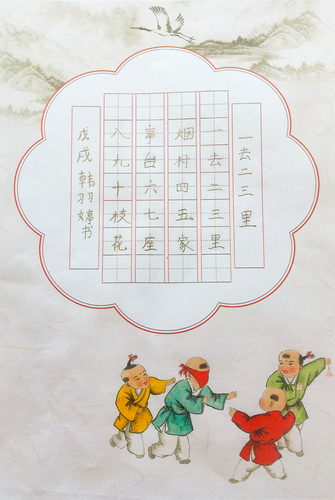 一去二三里
一去二三里
烟村四五家
亭台六七座
八九十枝花
戊戌 韩羽婷书